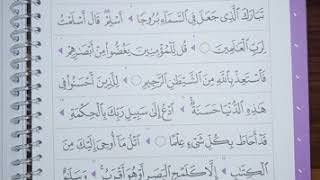 تَبَارَكَ الَّذِي جَعَلَ فِي السَّمَاءِ بُرُوجًا ۞ أَسْلِمْ ۖ قَالَ أَسْلَمْتُ
لِرَبِّ الْعَالَمِينَ ۞ قُل لِّلْمُؤْمِنِينَ يَغُضُّوا مِنْ أَبْصَارِهِمْ ۞
فَاسْتَعِذْ بِاللَّهِ مِنَ الشَّيْطَانِ الرَّجِيمِ ۞ لِلَّذِينَ أَحْسَنُوا فِي
هَٰذِهِ الدُّنْيَا حَسَنَةٌ ۞ ادْعُ إِلَىٰ سَبِيلِ رَبِّكَ بِالْحِكْمَةِ ۞
قَدْ أَحَاطَ بِكُلِّ شَيْءٍ عِلْمًا ۞ اتْلُ مَا أُوحِيَ إِلَيْكَ مِنَ
الْكِتَٰبِ ۞ إِلَّا كَلَمْحِ الْبَصَرِ أَوْ هُوَ أَقْرَبُ ۞ وَسَلَٰمٌ